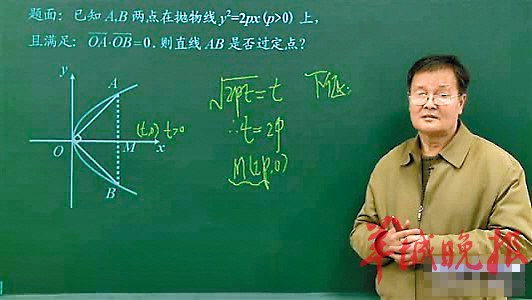 题面：已知 A,B 两点在抛物线 y²=2px (p>0) 上，
且满足：OA·OB=0，则直线 AB 是否过定点？
y
A
(t,0) t>0
O
M
x
B
√2pt=t
∴t=2p
M(2p,0)
下证:
羊城晚报